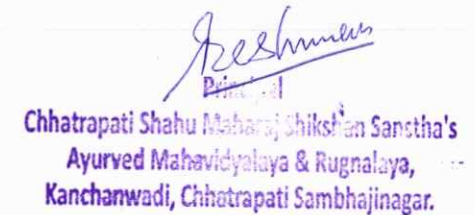 Principal
Chhatrapati Shahu Maharaj Shikshan Sanstha's
Ayurved Mahavidyalaya & Rugnalaya,
Kanchanwadi, Chhatrapati Sambhajinagar.